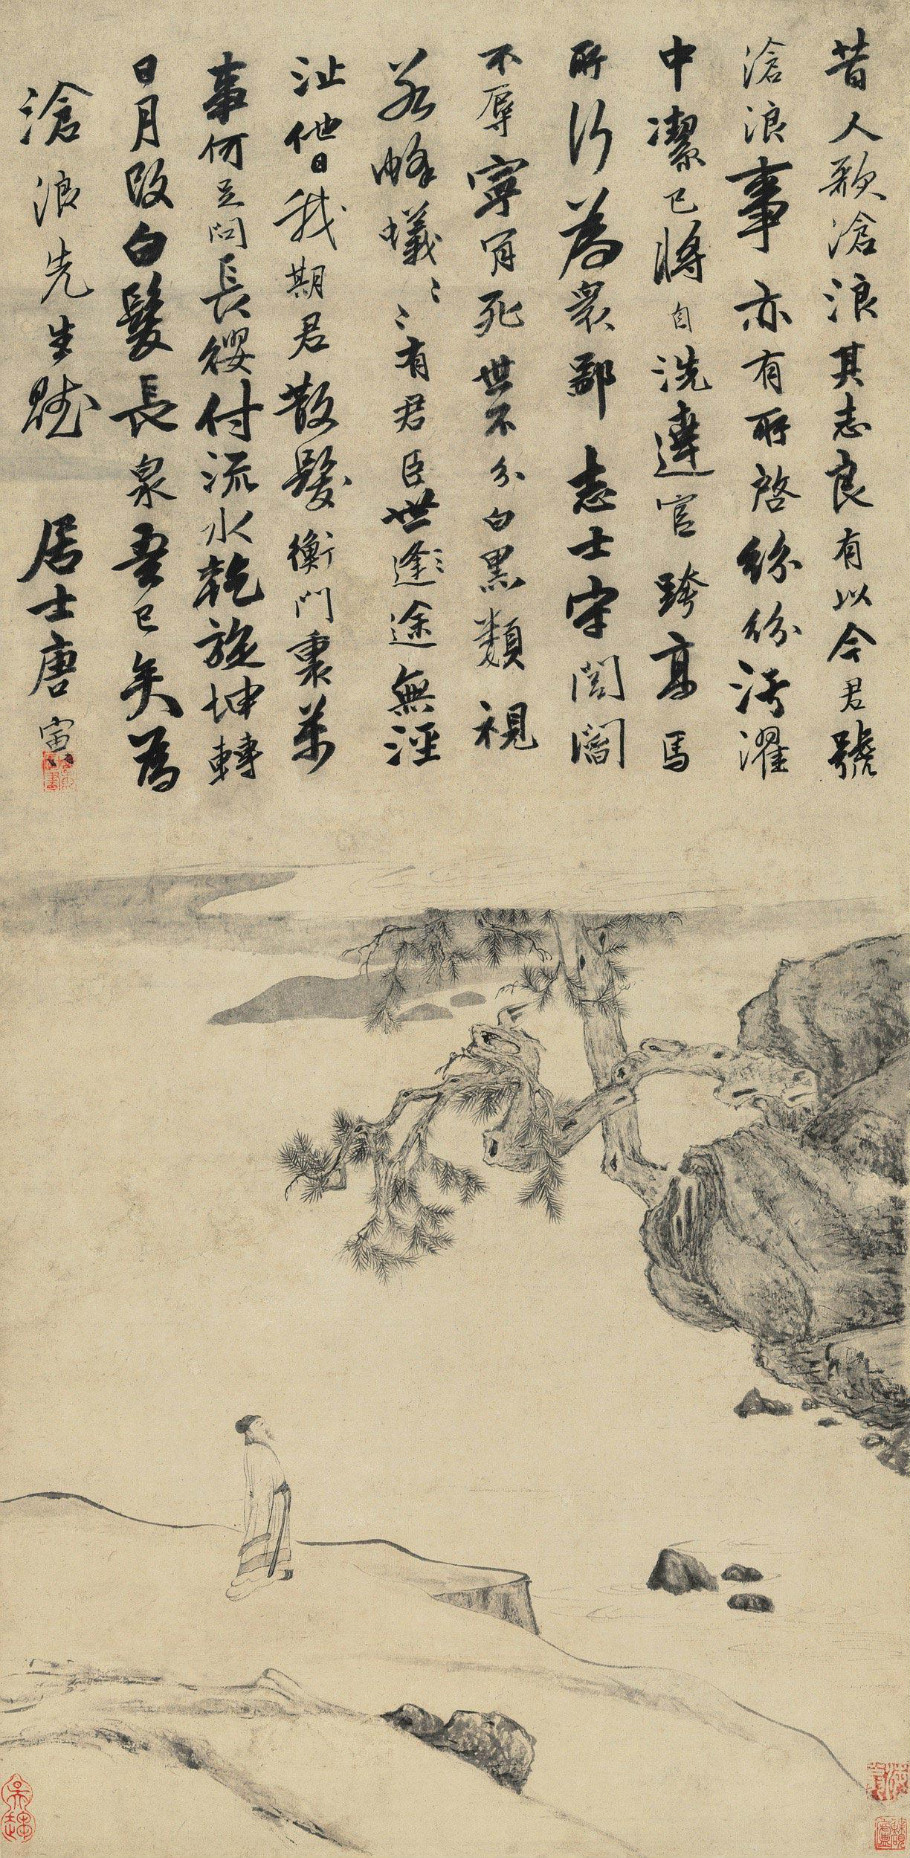 昔人歌滄浪其志良有以今君號
滄浪事亦有所啓紛紛污濯
中潔已將自洗達官跨高馬
所行為衆鄙志士守閭閻
不辱寧肎死世不分白黑類視
若蜂蟻〻〻有君臣世逢途無涇
沚他日我期君散髮衡門裏萬
事何足問長纓付流水乾旋坤轉
日月改白髮長吾已矣為
滄浪先生賦 居士唐寅
吳趨